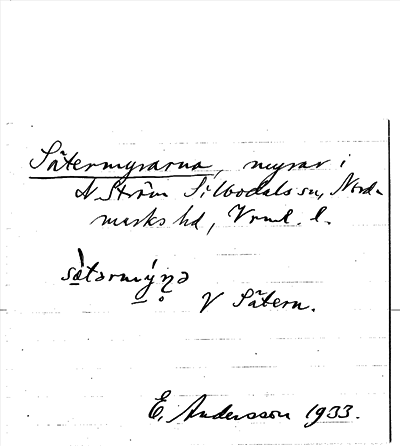 Sätermyrarna, myrar i
N Ström Silbodals sn, Nord-
marks hd, Vrml. l.
sàtərmýṇə
V Sätern.
E. Andersson 1933.